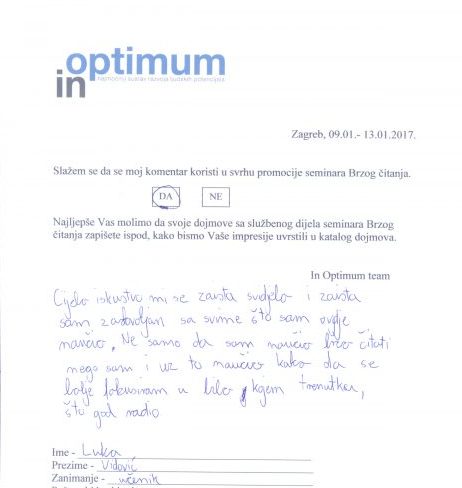 optimum
in
najmoćniji sustav razvoja ljudskih potencijala
Zagreb, 09.01.- 13.01.2017.
Slažem se da se moj komentar koristi u svrhu promocije seminara Brzog čitanja.
DA NE
Najljepše Vas molimo da svoje dojmove sa službenog dijela seminara Brzog
čitanja zapišete ispod, kako bismo Vaše impresije uvrstili u katalog dojmova.
In Optimum team
Cijelo iskustvo mi se zaista svidjelo i zaista
sam zadovoljan sa svime što sam ovdje
naučio. Ne samo da sam naučio brzo čitati
nego sam i uz to naučio kako da se
bolje fokusiram u bilo kojem trenutku,
što god radio.
Ime - Luka
Prezime - Vidović
Zanimanje - učenik